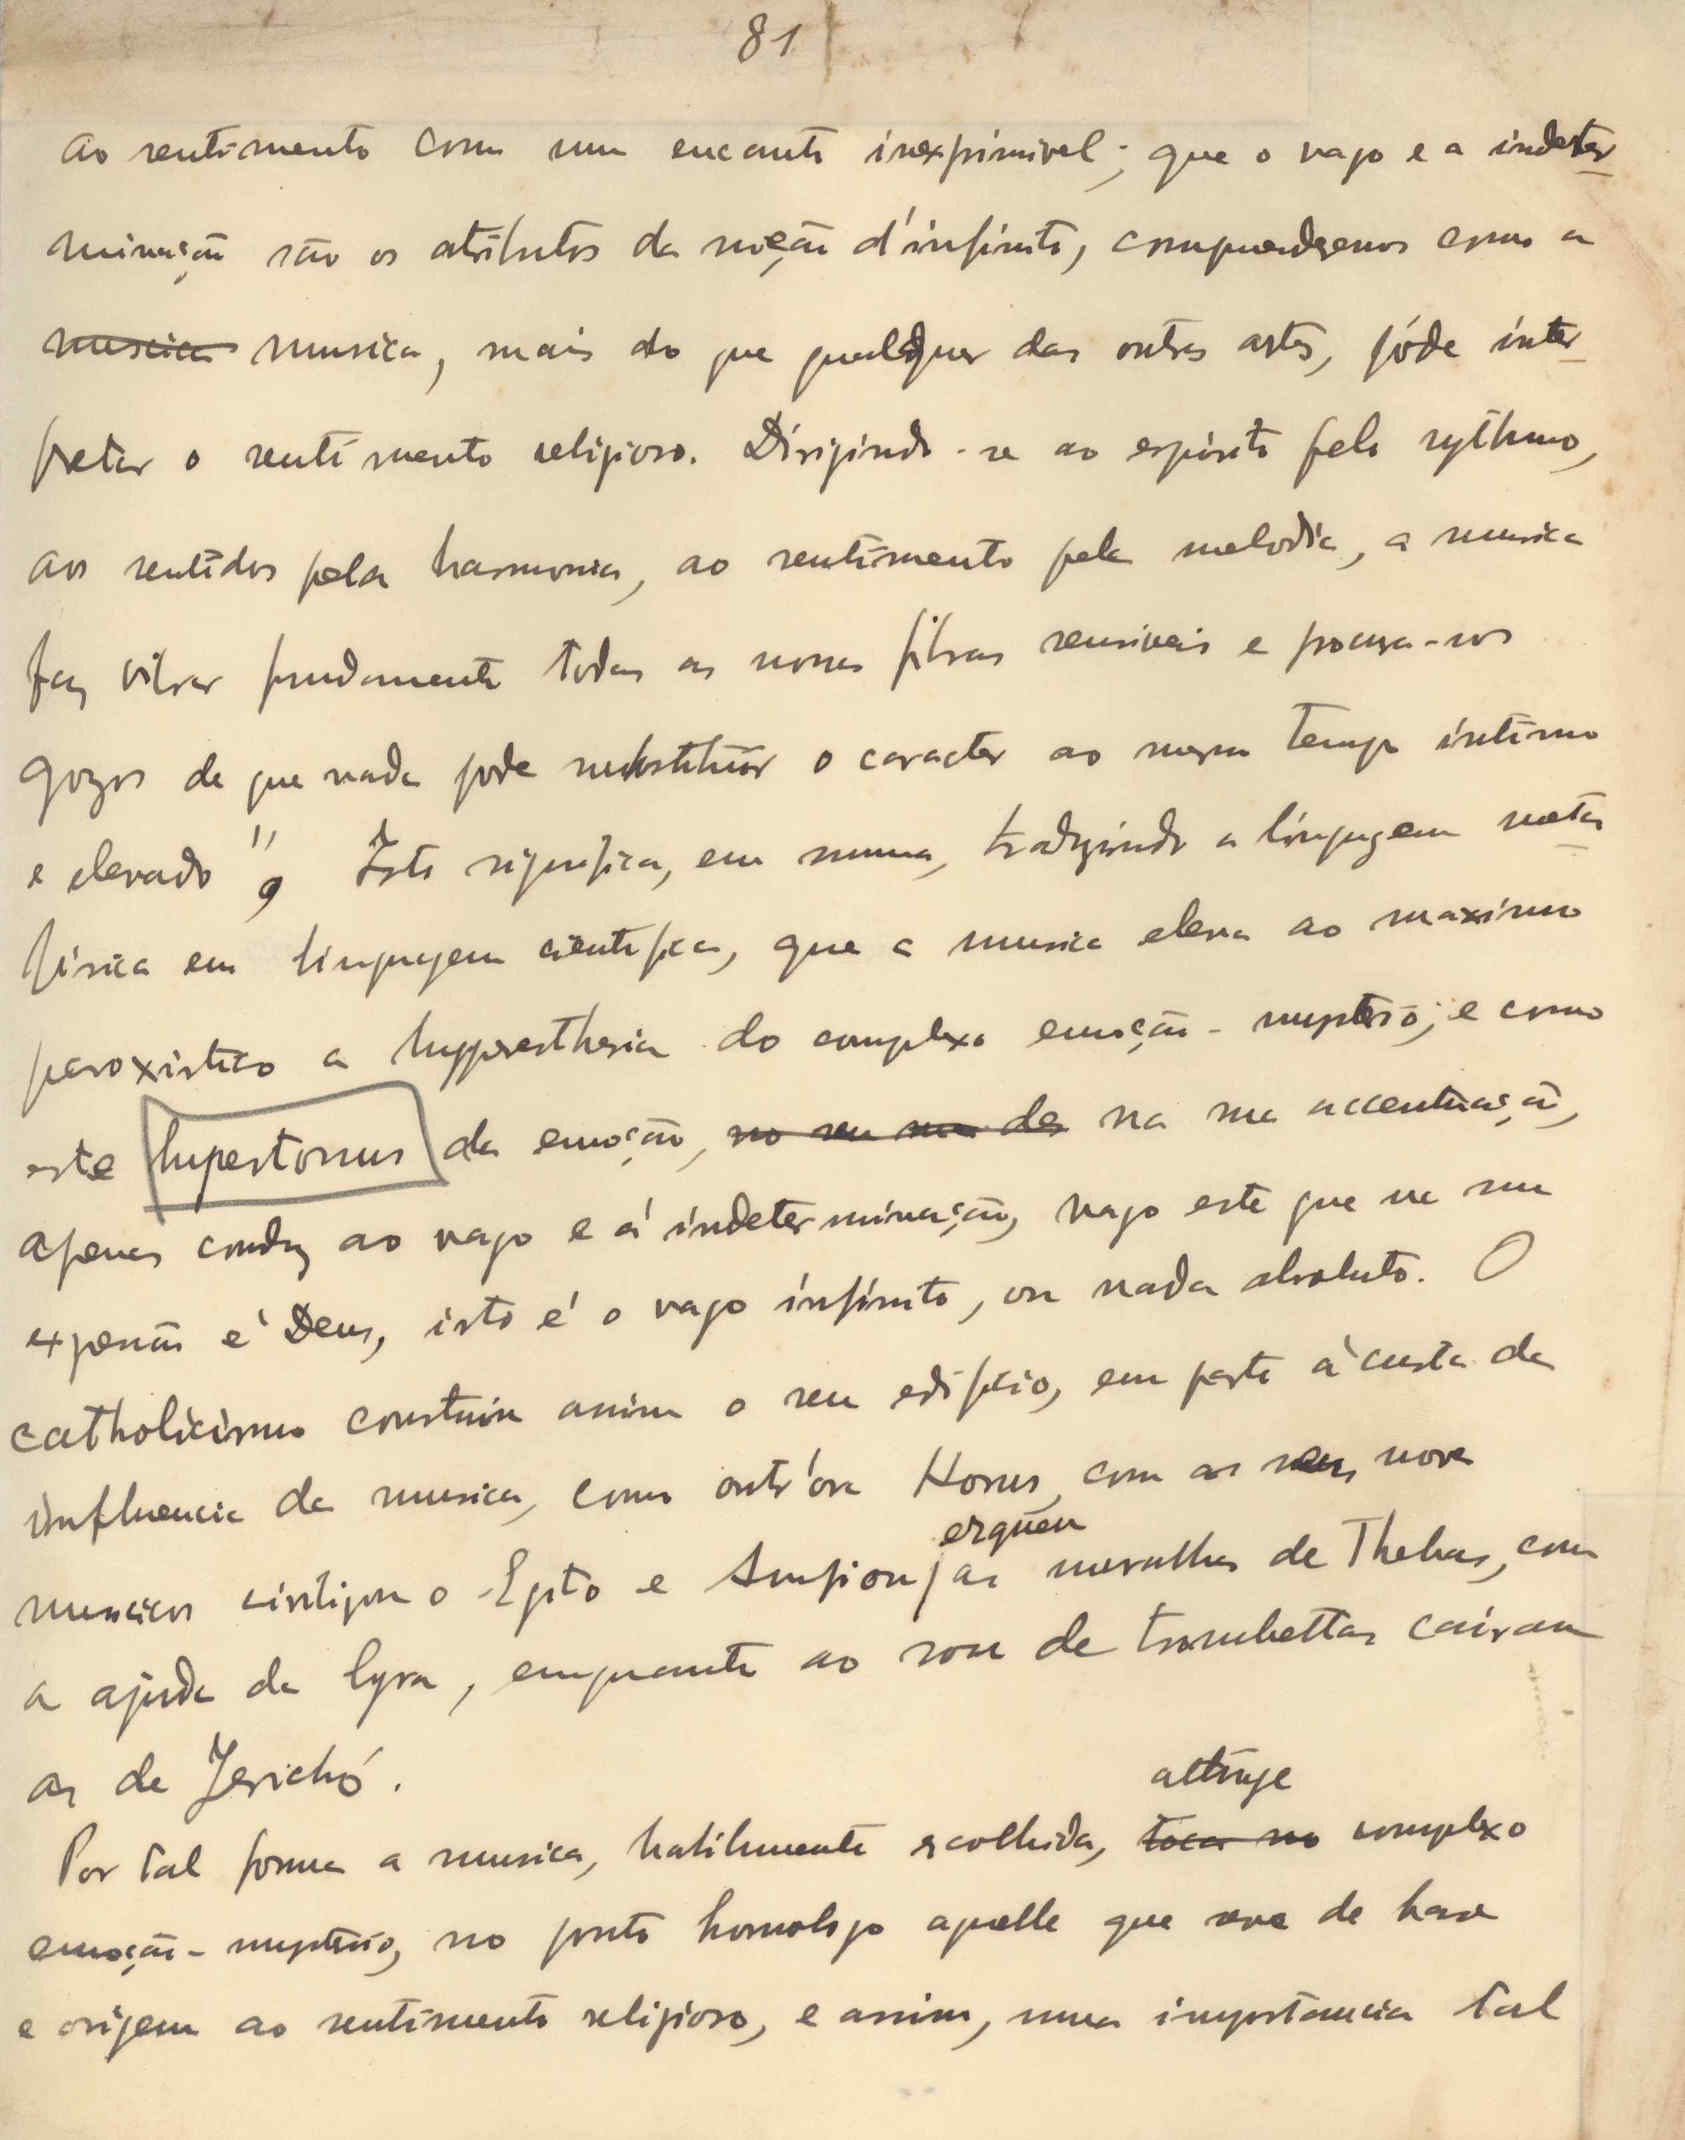 81
ao sentimento com um encanto inexprimivel; que o vago e a indeter
minação são os atributos da noção d'infinito, comprehendemos como a
musica musica, mais do que qualquer das outras artes, póde inter
pretar o sentimento religioso. Dirigindo-se ao espirito pelo rythmo,
aos sentidos pela harmonia, ao sentimento pela melodia, a musica
faz vibrar fundamente todas as nossas fibras sensiveis e procura-nos
gozos de que nada pode substituir o caracter ao mesmo tempo intimo
e elevado", Isto significa, em summa, traduzindo a linguagem meta
fisica em linguagem cientifica, que a musica eleva ao maximo
paroxistico a hyperesthesia do complexo emoção-mysterio; e como
este hipertonus da emoção, no seu na sua accentuação,
apenas conduz ao vago e á indeterminação, vago este que na sua
expansão é Deus, isto é o vago infinito, ou nada absoluto. O
catholicismo construiu assim o seu edificio, em parte á custa da
influencia da musica, como outr'ora Horus, com as suas nove
ergueu
musicas civilizou o Egito e Amfion as muralhas de Thebas, com
a ajuda da lyra, emquanto ao som de trombettas cairam
as de Jerichó.
attinge
Por tal forma a musica, habilmente escolhida, toca no complexo
emoção-mysterio, no ponto homologo aquelle que serve de base
e origem ao sentimento religioso, e assim, uma importancia tal